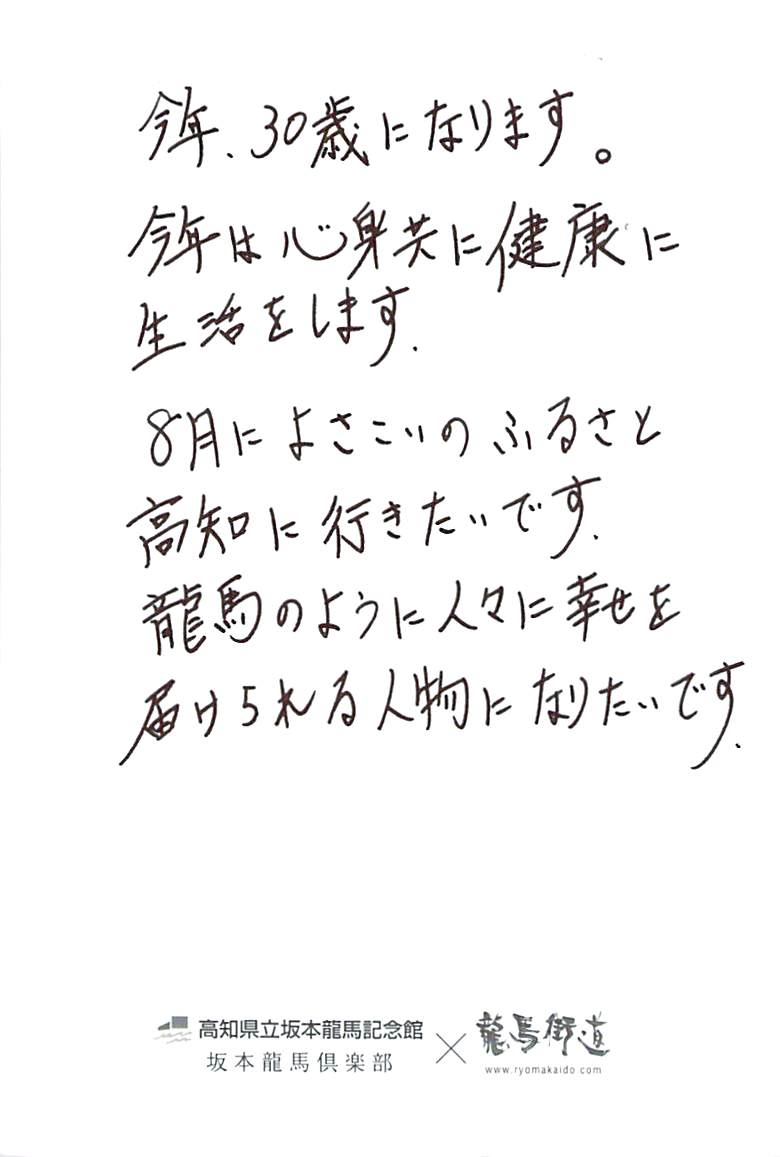 今年、30歳になります。
今年は心身共に健康に
生活をします.
8月によさこいのふるさと
高知に行きたいです.
龍馬のように人々に幸せを
届けられる人物になりたいです.
高知県立坂本龍馬記念館
坂本龍馬倶楽部
×
龍馬街道
www.ryomakaido.com